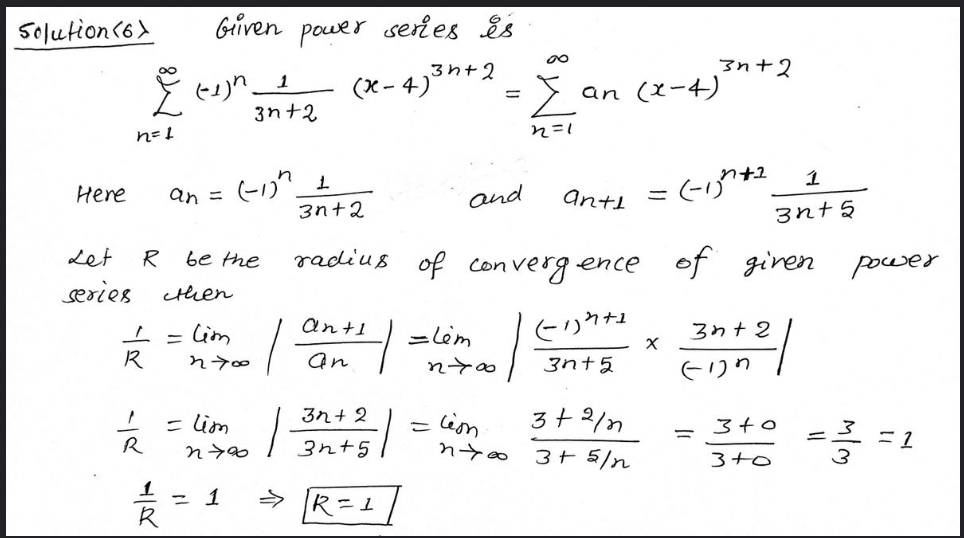 Solution(6) Given power series is
∞ ∑ n=1 (-1)^n 1/(3n+2) (x-4)^(3n+2) = ∞ ∑ n=1 an (x-4)^(3n+2)
Here an = (-1)^n 1/(3n+2) and an+1 = (-1)^(n+1) 1/(3n+5)
Let R be the radius of convergence of given power
series then
1/R = lim n→∞ | an+1 / an | = lim n→∞ | (-1)^(n+1)/(3n+5) × (3n+2)/(-1)^n |
1/R = lim n→∞ | (3n+2)/(3n+5) | = lim n→∞ (3+2/n)/(3+5/n) = (3+0)/(3+0) = 3/3 = 1
1/R = 1 ⇒ R=1